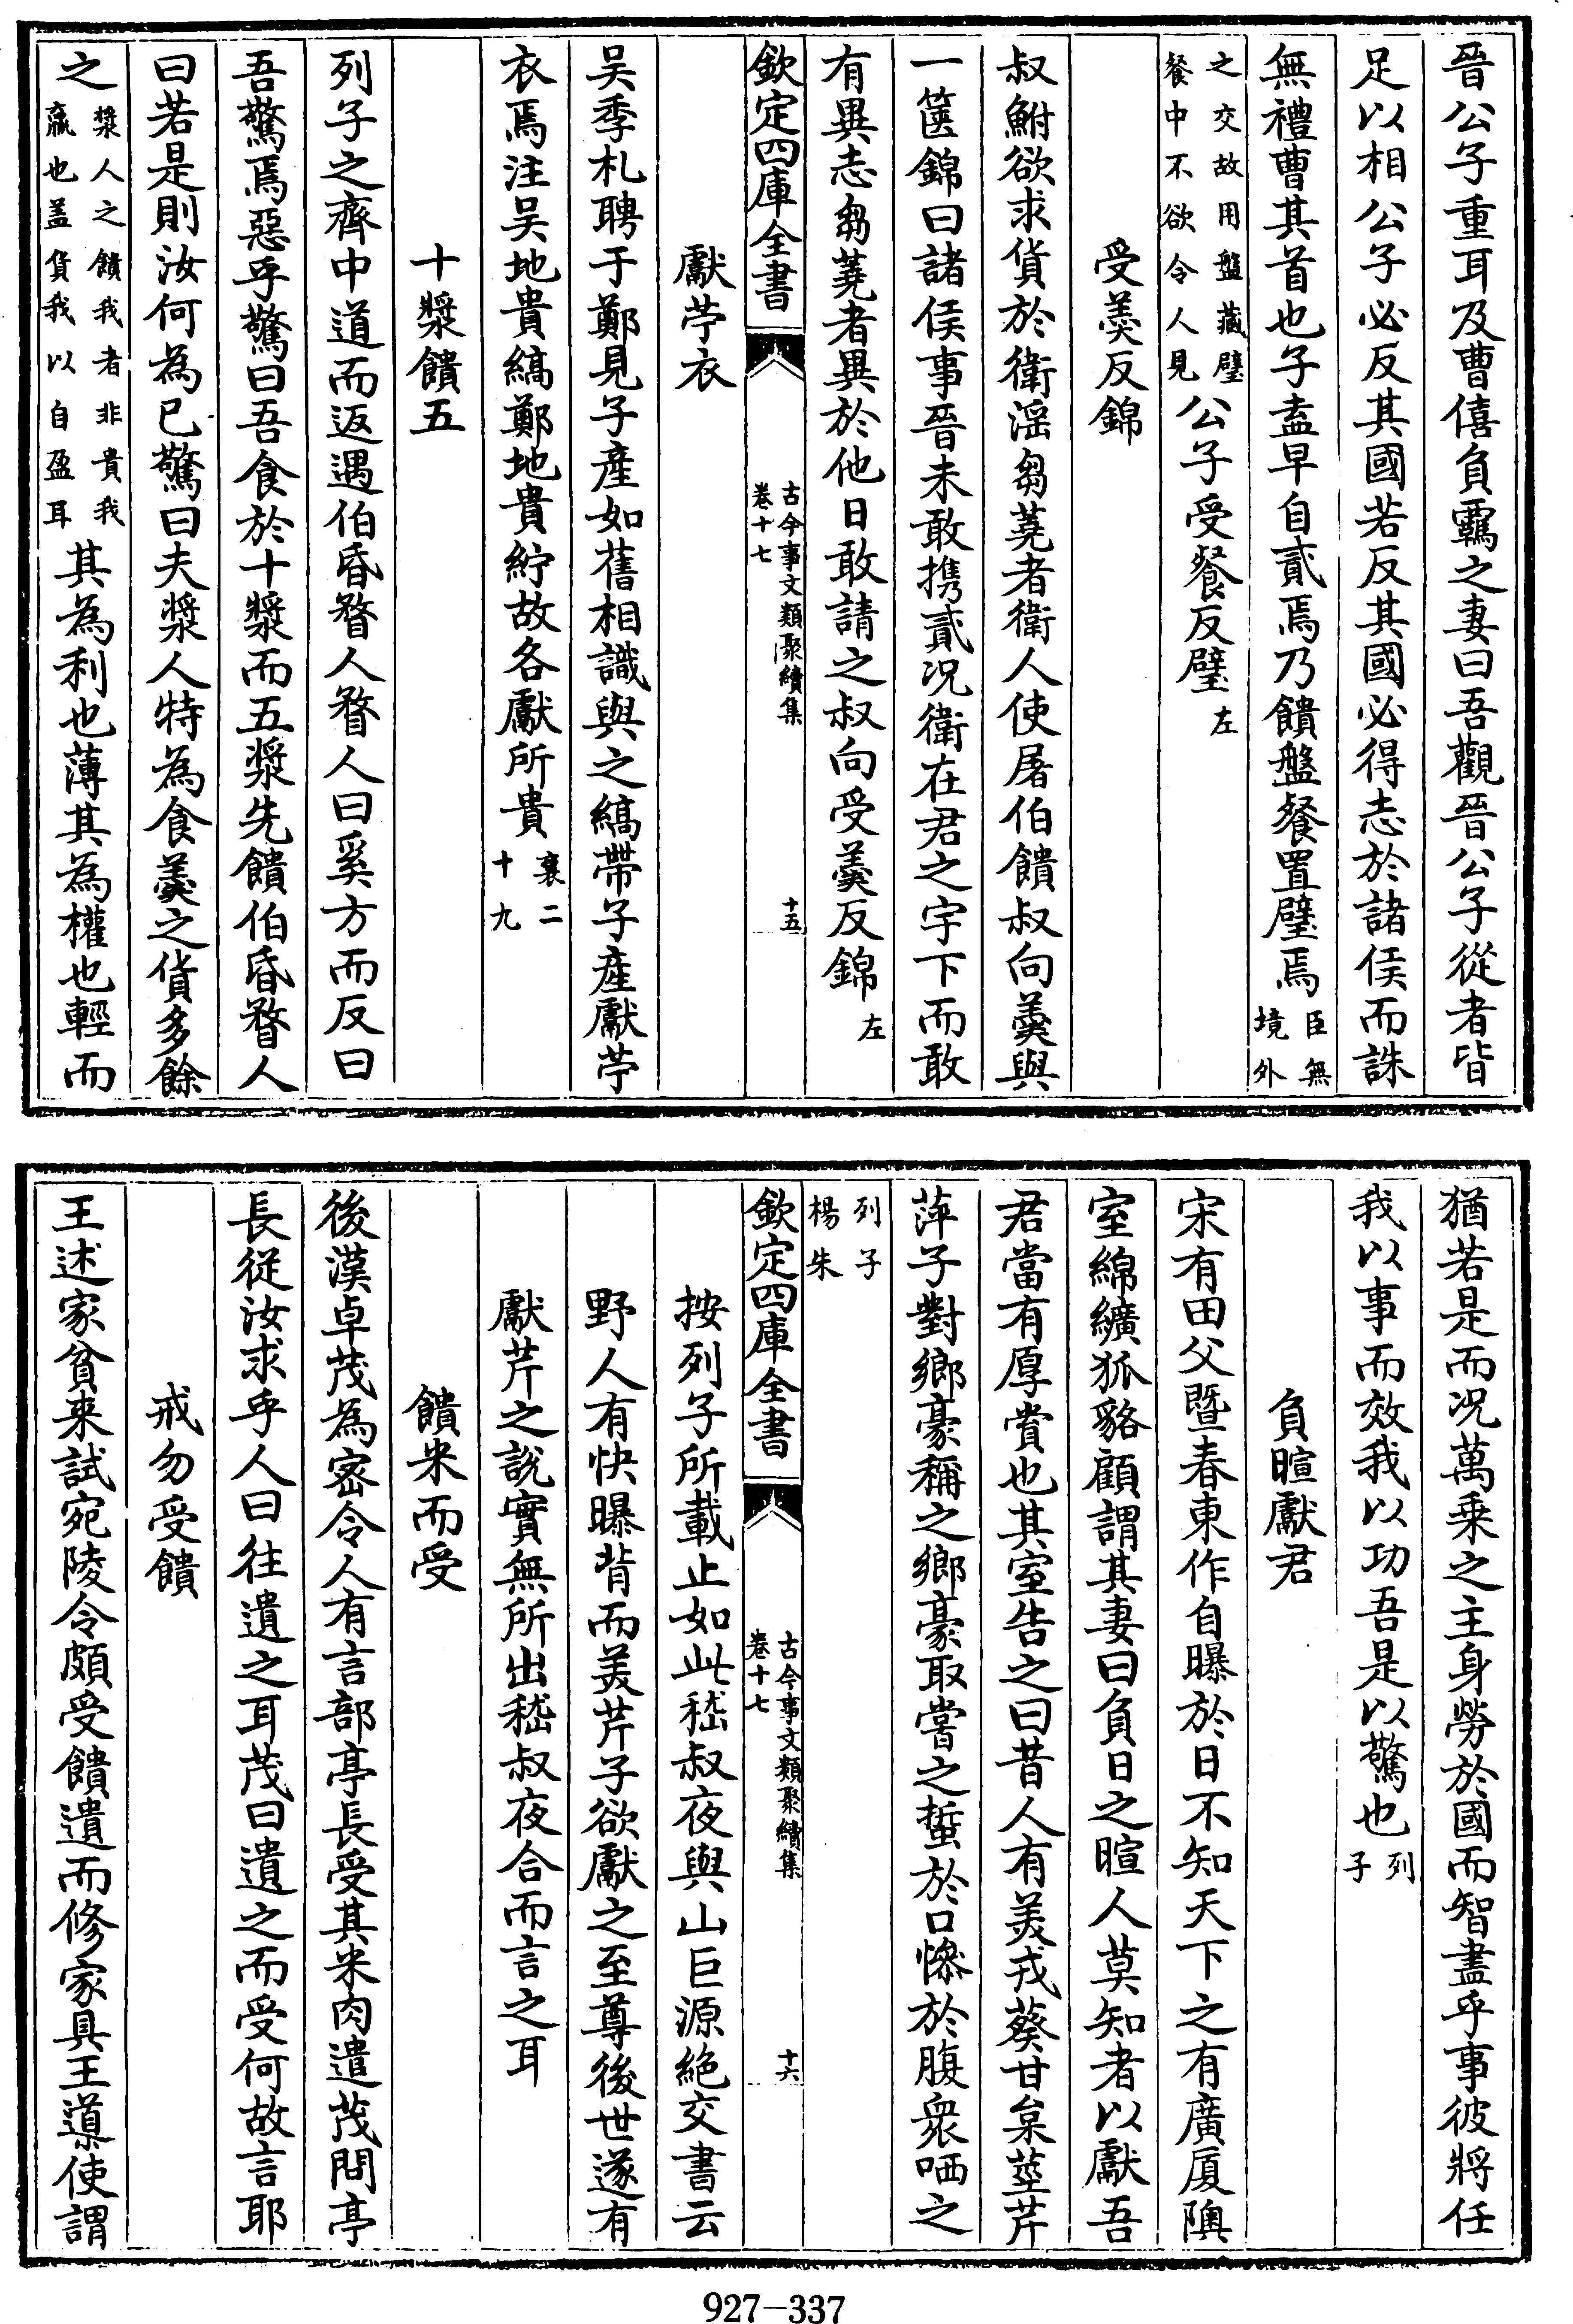 晉公子重耳及曹僖負羈之妻曰吾觀晉公子從者皆
足以相公子必反其國若反其國必得志於諸侯而誅
無禮曹其首也子盍早自貳焉乃饋盤餐置璧焉臣無境外
之交故用盤藏璧餐中不欲令人見公子受餐反璧左
受羹反錦
叔鮒欲求貨於衛淫芻蕘者衛人使屠伯饋叔向羹與
一篋錦曰諸侯事晉未敢携貳況衛在君之宇下而敢
有異志芻蕘者異於他日敢請之叔向受羹反錦左
欽定四庫全書
古今事文類聚續集
卷十七
十五
獻苧衣
吳季札聘于鄭見子產如舊相識與之縞帶子產獻苧
衣焉注吳地貴縞鄭地貴紵故各獻所貴襄二十九
十漿饋五
列子之齊中道而返遇伯昏瞀人瞀人曰奚方而反曰
吾驚焉惡乎驚曰吾食於十漿而五漿先饋伯昏瞀人
曰若是則汝何為已驚曰夫漿人特為食羹之貨多餘
之漿人之饋我者非貴我羸也盖貨我以自盈耳其為利也薄其為權也輕而
猶若是而况萬乗之主身勞於國而智盡乎事彼將任
我以事而效我以功吾是以驚也列子
負暄獻君
宋有田父暨春東作自曝於日不知天下之有廣厦隩
室綿纊狐貉顧謂其妻曰負日之暄人莫知者以獻吾
君當有厚賞也其室告之曰昔人有美戎葵甘枲莖芹
萍子對鄉豪稱之鄉豪取嘗之蜇於口慘於腹衆哂之
列子楊朱
欽定四庫全書
古今事文類聚續集
卷十七
十六
按列子所載止如此嵇叔夜與山巨源絶交書云
野人有快曝背而美芹子欲獻之至尊後世遂有
獻芹之說實無所出嵇叔夜合而言之耳
饋米而受
後漢卓茂為密令人有言部亭長受其米肉遣茂問亭
長從汝求乎人曰往遺之耳茂曰遺之而受何故言耶
戒勿受饋
王述家貧來試宛陵令頗受饋遺而修家具王導使謂
927-337